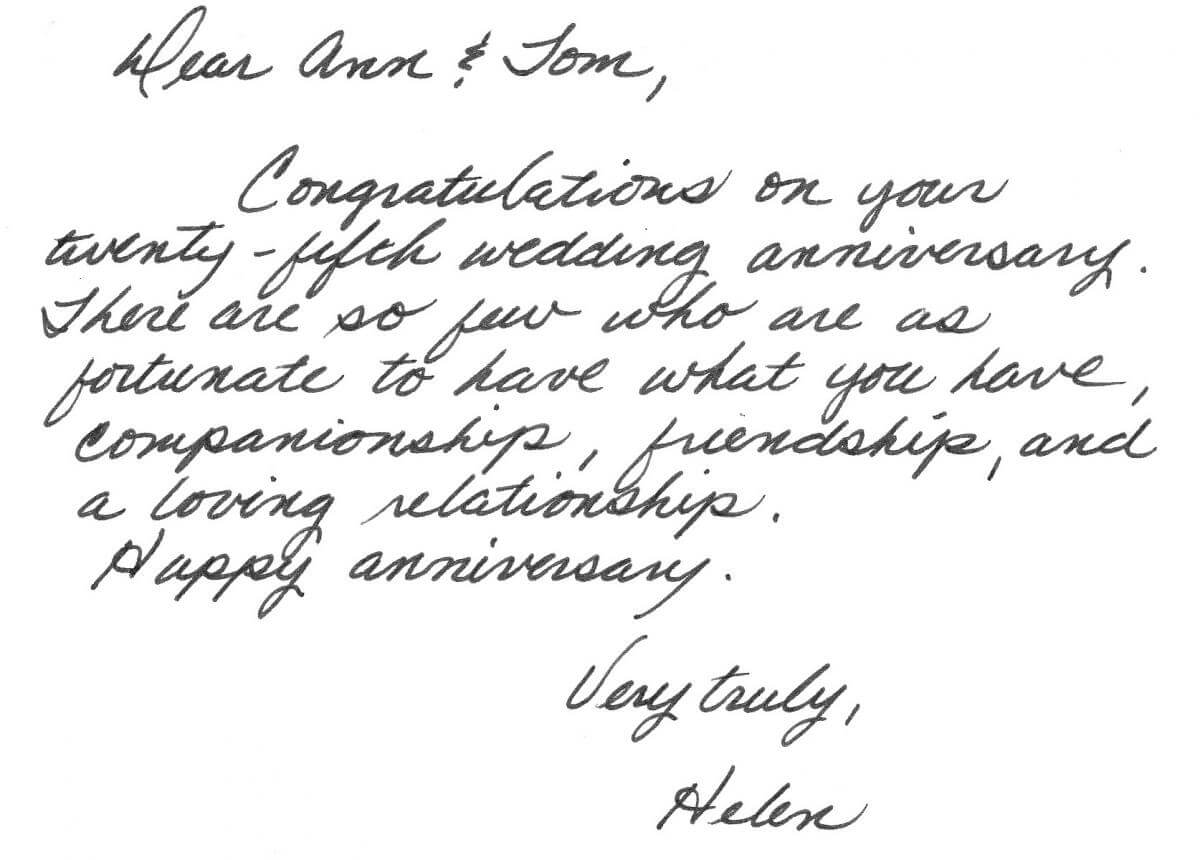 Dear Ann & Tom,
Congratulations on your
twenty-fifth wedding anniversary.
There are so few who are as
fortunate to have what you have,
companionship, friendship, and
a loving relationship.
Happy anniversary.
Very truly,
Helen